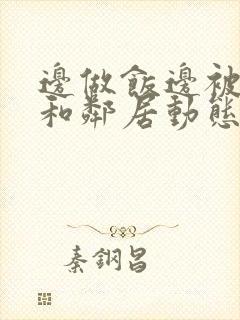 邊做飯邊被
和鄰居動態
秦鋼昌